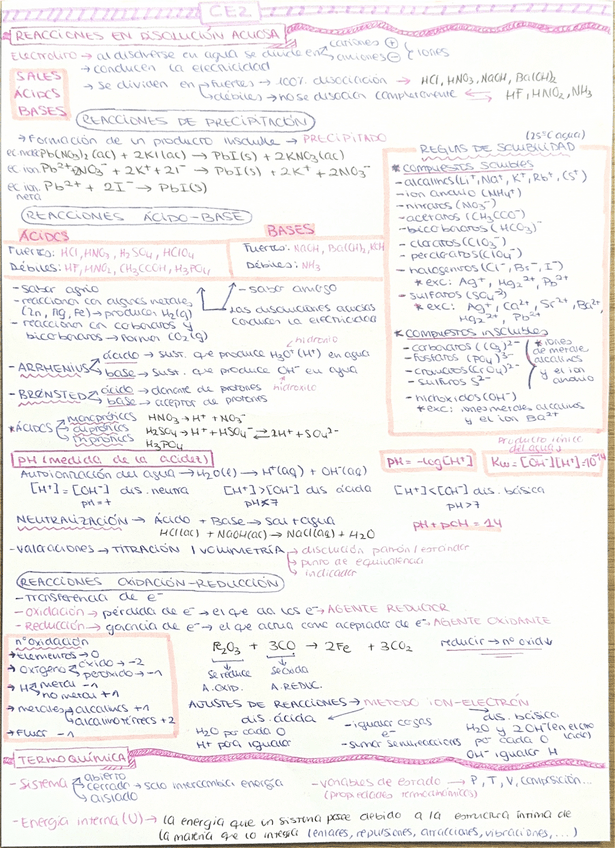 CE2
REACCIONES EN DISOLUCIÓN ACUOSA
Electrolito → al disolverse en agua se divide en cationes ⊕ aniones ⊖ iones
→ conducen la electricidad
SALES
ÁCIDOS
BASES
→ se dividen en fuertes → 100% disociación → HCl, HNO3, NaOH, Ba(OH)2
débiles → no se disocian completamente ⇌ HF, HNO2, NH3
REACCIONES DE PRECIPITACIÓN
→ Formación de un producto insoluble → PRECIPITADO
Pb(NO3)2 (ac) + 2KI(ac) → PbI(s) + 2KNO3(ac)
ec ion. Pb2+ + 2NO3- + 2K+ + 2I- → PbI(s) + 2K+ + 2NO3-
ec ion. neta Pb2+ + 2I- → PbI(s)
(25ºC agua)
REGLAS DE SOLUBILIDAD
* compuestos solubles
- alcalinos (Li+, Na+, K+, Rb+, Cs+)
- ion amonio (NH4+)
- nitratos (NO3-)
- acetatos (CH3COO-)
- bicarbonatos (HCO3)-
- cloratos (ClO3-)
- percloratos (ClO4-)
- halogenuros (Cl-, Br-, I-)
* exc: Ag+, Hg22+, Pb2+
- sulfatos (SO42-)
* exc: Ag+, Ca2+, Sr2+, Ba2+, Hg22+, Pb2+
* compuestos insolubles
- carbonatos (CO3)2-
- fosfatos (PO4)3-
- cromatos (CrO4)2-
- sulfuros S2-
* iones de metales alcalinos y el ion amonio
- hidróxidos (OH-)
* exc: iones metales alcalinos y el ion Ba2+
REACCIONES ÁCIDO-BASE
ÁCIDOS
Fuertes: HCl, HNO3, H2SO4, HClO4
Débiles: HF, HNO2, CH3COOH, H3PO4
BASES
Fuertes: NaOH, Ba(OH)2, KOH
Débiles: NH3
- sabor agrio
- reaccionan con algunos metales (Zn, Mg, Fe) → producen H2(g)
- reaccionan con carbonatos y bicarbonatos → forman CO2(g)
- sabor amargo
Las disoluciones acuosas conducen la electricidad
- ARRHENIUS ácido → sust. que produce H3O+ (H+) en agua
hidronio
base → sust. que produce OH- en agua
hidroxilo
- BRØNSTED ácido → donante de protones
base → aceptor de protones
* ÁCIDOS monopróticos HNO3 → H+ + NO3-
dipróticos H2SO4 → H+ + HSO4- ⇌ 2H+ + SO42-
tripróticos H3PO4
pH (medida de la acidez)
pH = -log[H+]
Producto iónico del agua
Kw = [OH-][H+] = 10-14
Autoionización del agua → H2O(l) → H+(aq) + OH-(aq)
[H+] = [OH-] dis. neutra
pH = 7
[H+] > [OH-] dis ácida
pH < 7
[H+] < [OH-] dis. básica
pH > 7
NEUTRALIZACIÓN → Ácido + Base → Sal + agua
HCl(ac) + NaOH(ac) → NaCl(ac) + H2O
pH + pOH = 14
- valoraciones → TITRACIÓN / VOLUMETRÍA → disolución patrón/estándar
→ punto de equivalencia
→ indicador
REACCIONES OXIDACIÓN-REDUCCIÓN
- Transferencia de e-
- Oxidación → pérdida de e- → el que da los e- → AGENTE REDUCTOR
- Reducción → ganancia de e- → el que actúa como aceptador de e- → AGENTE OXIDANTE
nº oxidación
→ elementos → 0
→ oxígeno óxido → -2
peróxido → -1
→ H metal -1
no metal +1
→ metales alcalinos +1
alcalinotérreos +2
→ Flúor -1
Fe2O3 + 3CO → 2Fe + 3CO2
reducir → nº oxid↓
Se reduce
A. OXID.
Se oxida
A. REDUC.
AJUSTES DE REACCIONES → MÉTODO IÓN-ELECTRÓN
dis. ácida
H2O por cada O
H+ para igualar
- igualar cargas e-
- sumar semirreacciones
dis. básica
H2O y 2OH- (en el otro lado) por cada O
OH- igualar H
TERMOQUÍMICA
- Sistema abierto
cerrado → solo intercambia energía
aislado
- variables de estado → P, T, V, composición...
(propiedades termodinámicas)
- Energía interna (U) → la energía que un sistema posee debido a la estructura íntima de
la materia que lo integra (enlaces, repulsiones, atracciones, vibraciones, ...)